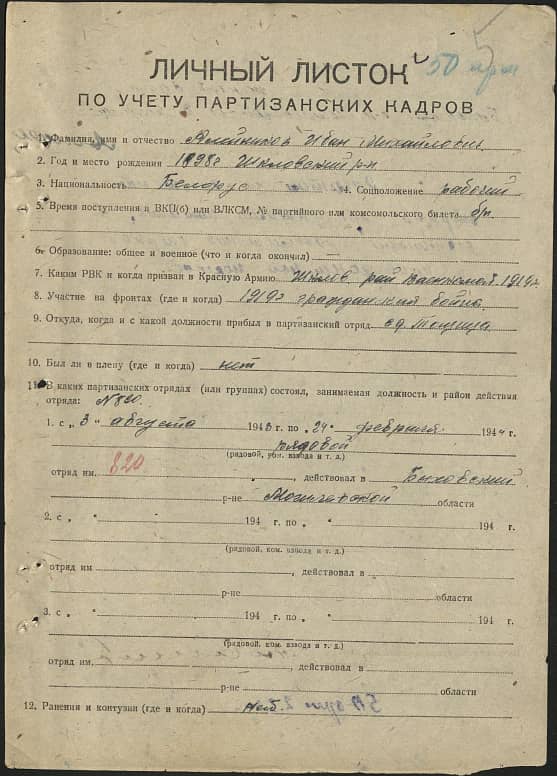 50
ЛИЧНЫЙ ЛИСТОК
ПО УЧЕТУ ПАРТИЗАНСКИХ КАДРОВ
1. Фамилия, имя и отчество Алейников Иван Михайлович
2. Год и место рождения 1898г Шкловский р-н
3. Национальность Белорус 4. Соцположение рабочий
5. Время поступления в ВКП(б) или ВЛКСМ, № партийного или комсомольского билета б/п.
6. Образование: общее и военное (что и когда окончил) —
7. Каким РВК и когда призван в Красную Армию Шклов. рай Военкомат. 1919г.
8. Участие на фронтах (где и когда) 1919г гражданский война
9. Откуда, когда и с какой должности прибыл в партизанский отряд с д.
10. Был ли в плену (где и когда) нет
11. В каких партизанских отрядах (или группах) состоял, занимаемая должность и район действия
отряда: № 820.
1. с „ 3 " августа 1943 г. по „ 24 " февраля 1944 г
рядовой
(рядовой, ком. взвода и т. д.)
отряд им. 820 , действовал в Быховский
р-не Могилевской области
2. с „ " 194 г. по „ " 194 г.
(рядовой, ком. взвода и т. д.)
отряд им , действовал в
р-не области
3. с „ " 194 г. по „ " 194 г.
(рядовой, ком. взвода и т. д.)
отряд им. , действовал в
р-не области
12. Ранения и контузии (где и когда)